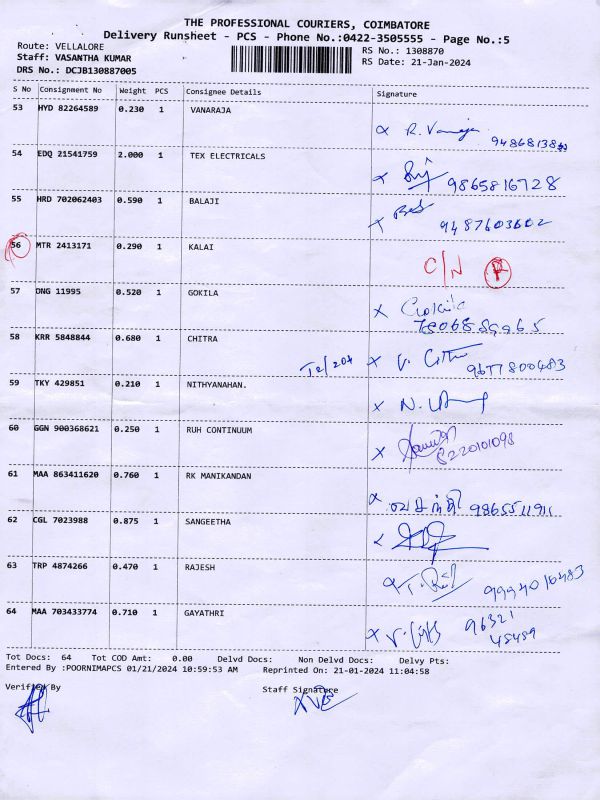 THE PROFESSIONAL COURIERS, COIMBATORE
Delivery Runsheet - PCS - Phone No.:0422-3505555 - Page No.:5
Route: VELLALORE
RS No.: 1308870
Staff: VASANTHA KUMAR
RS Date: 21-Jan-2024
DRS No.: DCJB130887005
S No Consignment No Weight PCS Consignee Details Signature
53 HYD 82264589 0.230 1 VANARAJA
x R. Vanaraja
54 EDQ 21541759 2.000 1 TEX ELECTRICALS
x 9865816728
55 HRD 702062403 0.590 1 BALAJI
x 9487603602
56 MTR 2413171 0.290 1 KALAI C/N P
57 DNG 11995 0.520 1 GOKILA
x Gokila
58 KRR 5848844 0.680 1 CHITRA
x 9677800483
59 TKY 429851 0.210 1 NITHYANAHAN.
x N.
60 GGN 900368621 0.250 1 RUH CONTINUUM
x 8220101098
61 MAA 863411620 0.760 1 RK MANIKANDAN
x 9865511911
62 CGL 7023988 0.875 1 SANGEETHA
63 TRP 4874266 0.470 1 RAJESH
x 9994010483
64 MAA 703433774 0.710 1 GAYATHRI
x 96321
48489
Tot Docs: 64 Tot COD Amt: 0.00 Delvd Docs: Non Delvd Docs: Delvy Pts:
Entered By :POORNIMAPCS 01/21/2024 10:59:53 AM Reprinted On: 21-01-2024 11:04:58
Verified By Staff Signature